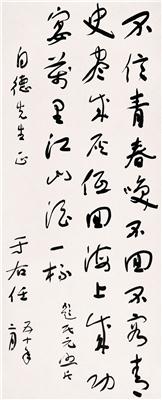 不信青春唤不回不容青
史尽成灰低回海上成功
宴万里江山酒一杯
题民元照片
白德先生正
于右任
五十年
二月